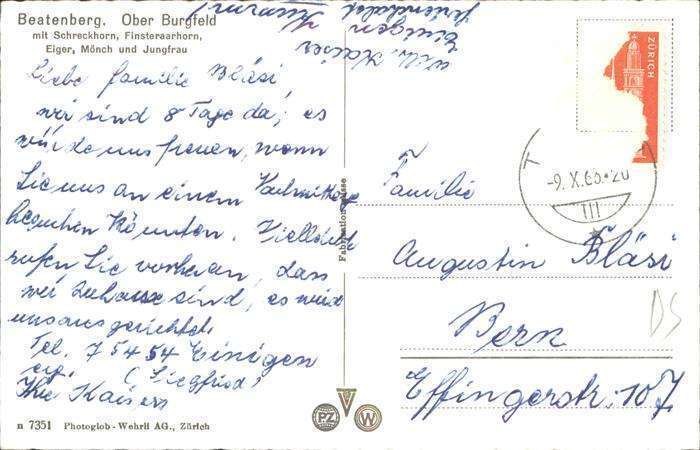 Beatenberg. Ober Burgfeld
mit Schreckhorn, Finsteraarhorn,
Eiger, Mönch und Jungfrau
Liebe Familie Bläsi
wir sind 8 Tage da, es
würde uns freuen, wenn
Sie uns an einem
besuchen könnten. Vielleicht
rufen Sie vorher an, dass
wir Zuhause sind, es wird
uns ausgerichtet.
Tel. 7 54 54 Einigen
(Siegfried)
Ihre Kaisers
Wilh. Kaiser
Einigen
Ferienchalet
ZÜRICH
-9. X. 60.-20
III
Familie
Augustin Bläsi
Bern
Effingerstr. 107
DS
Fabrication Suisse
PZ
W
n 7351 Photoglob-Wehrli AG., Zürich